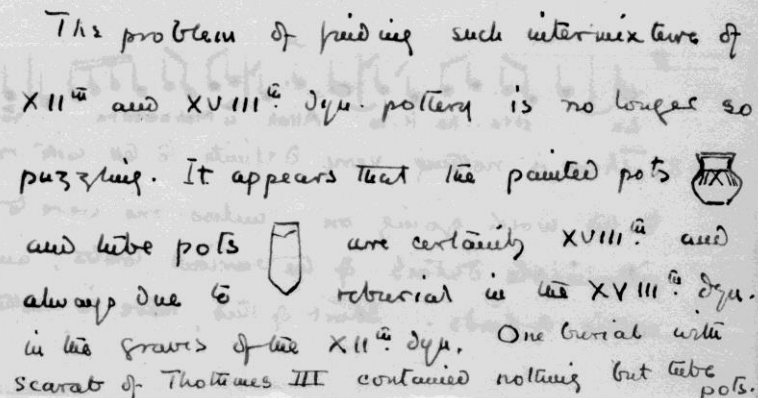 The problem of finding such intermixture of
XIIth and XVIIIth. dyn. pottery is no longer so
puzzling. It appears that the painted pots
and tube pots are certainly XVIIIth. and
always due to reburial in the XVIIIth. dyn.
in the graves of the XIIth. dyn. One burial with
scarab of Thothmes III contained nothing but tube
pots.